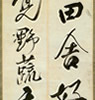 田舍好
覓野蔬